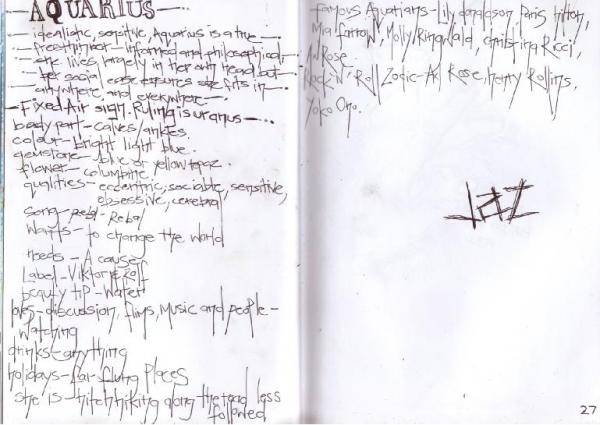 AQUARIUS
- idealistic, sensitive, Aquarius is a true -
- freethinker - informed and philosophical,
- she lives largely in her own head but -
- her social ease ensures she fits in -
- anywhere and everywhere. -
- Fixed Air sign. Ruling is uranus -
body part - calves/ankles.
colour - bright light blue.
gemstone - blue or yellow topaz.
flower - columbine.
qualities - eccentric, sociable, sensitive,
obsessive, cerebral
song - rebel - Rebel
wants - to change the world
needs - A cause
Label - Viktor & Rolf
beauty tip - Water
loves - discussion, films, Music and people -
watching
drinks - anything
holidays - far-flung Places
she is hitchhiking along the road less
followed
famous Aquarians - Lily donaldson, Paris hilton,
Mia farrow, Molly Ringwald, christina Ricci,
Axl Rose.
Rock 'n' Roll Zodiac - Axl Rose, Henry Rollins,
Yoko Ono.
27